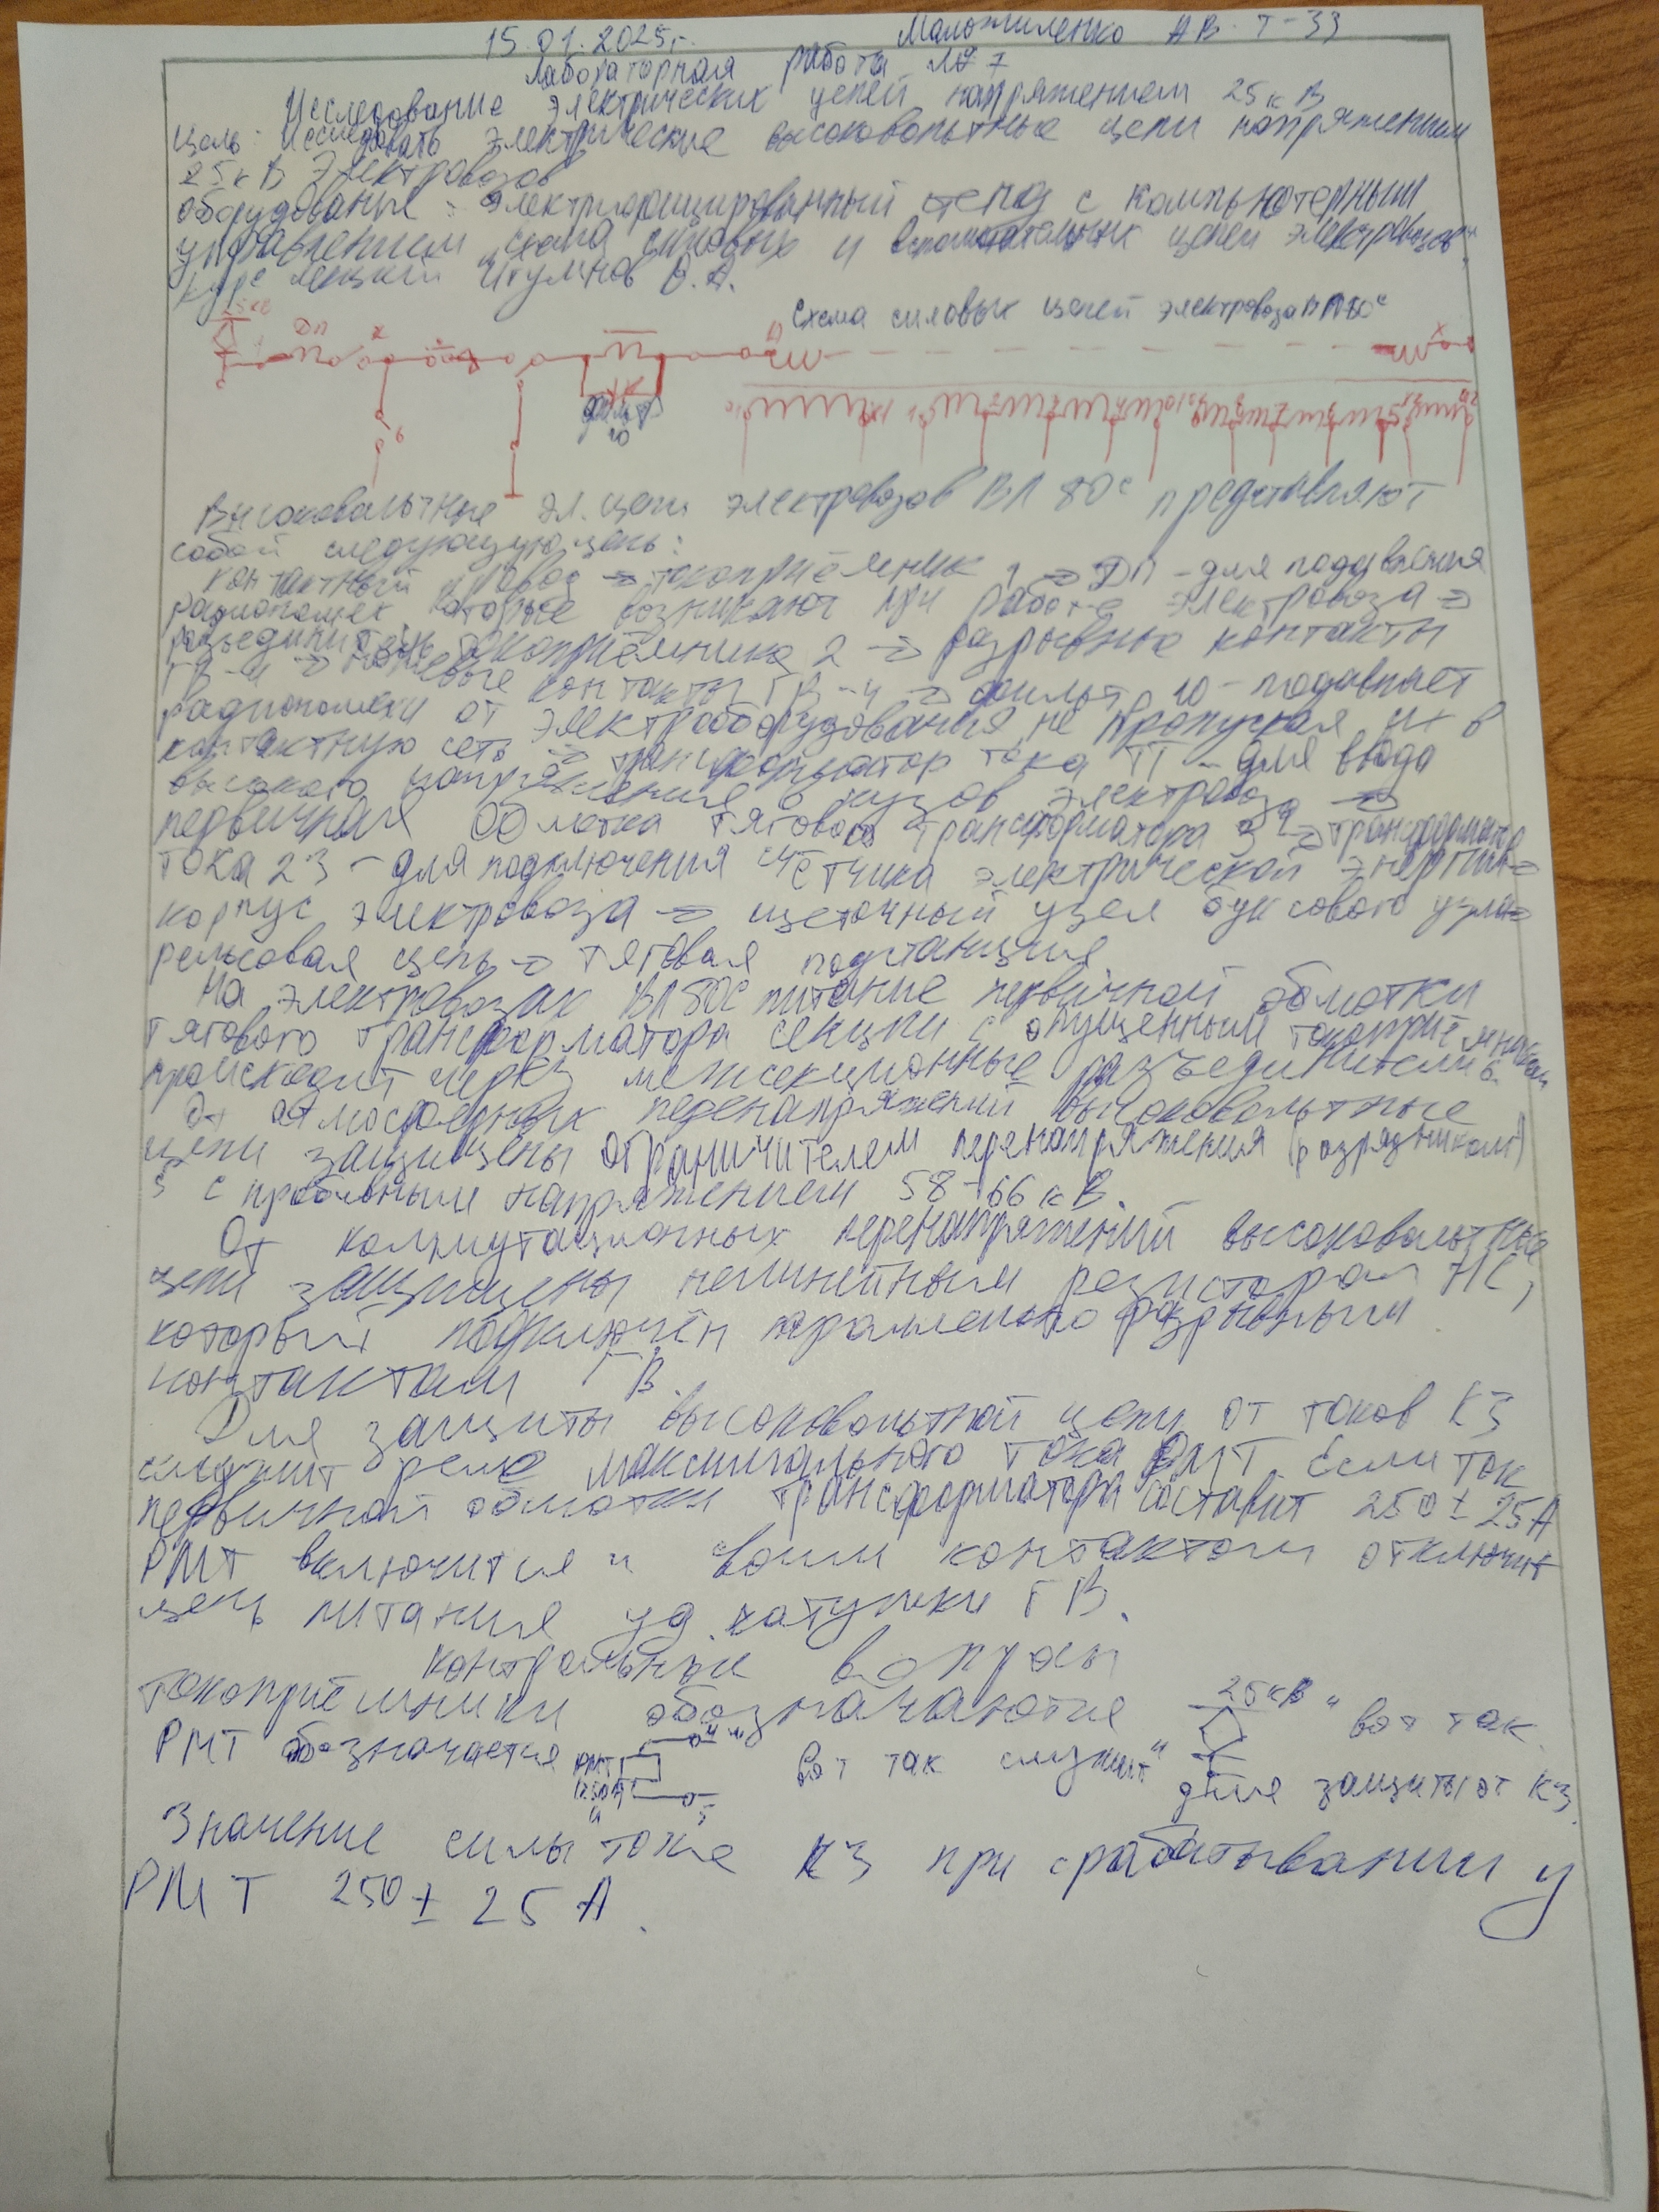 15.01.2025г. Маложиленко АВ. Т-33
Лабораторная работа №7
Исследование электрических цепей напряжением 25 кВ
Цель: Исследовать электрические высоковольтные цепи напряжением
25 кВ Электровозов
Оборудование: электрифицированный стенд с компьютерным
управлением, схема силовых и вспомогательных цепей электровозов,
курс лекций В.А.
Схема силовых цепей электровоза ВЛ80с
25кВ
ДП
фильтр
10
6
Высоковольтные эл. цепи электровозов ВЛ 80с представляют
собой следующую цепь:
контактный провод → токоприёмник 1 → ДП - для подавления
радиопомех которые возникают при работе электровоза →
разъединитель токоприёмника 2 → разрывные контакты
ГВ-4 → ножевые контакты ГВ-4 → фильтр 10 - подавляет
радиопомехи от электрооборудования, не пропуская их в
контактную сеть → трансформатор тока ТТ - для ввода
высокого напряжения в кузов электровоза →
первичная обмотка тягового трансформатора 3 → трансформатор
тока 23 - для подключения счётчика электрической энергии →
корпус электровоза → щеточный узел буксового узла →
рельсовая цепь → тяговая подстанция
На электровозах ВЛ80С питание первичной обмотки
тягового трансформатора секции с опущенным токоприёмником
происходит через межсекционные разъединители 6.
От атмосферных перенапряжений высоковольтные
цепи защищены ограничителем перенапряжения (разрядником)
5 с пробивным напряжением 58-66 кВ.
От коммутационных перенапряжений высоковольтные
цепи защищены нелинейным резистором НС,
который подключён параллельно разрывным
контактам ГВ.
Для защиты высоковольтной цепи от токов КЗ
служит реле максимального тока РМТ. Если ток
первичной обмотки трансформатора составит 250 ± 25А
РМТ включится и своим контактом отключит
цепь питания уд. катушки ГВ.
Контрольные вопросы
токоприёмники обозначаются 25кВ " вот так.
РМТ обозначается РМТ 250А вот так служит для защиты от КЗ.
Значение силы тока КЗ при срабатывании у
РМТ 250 ± 25 А.